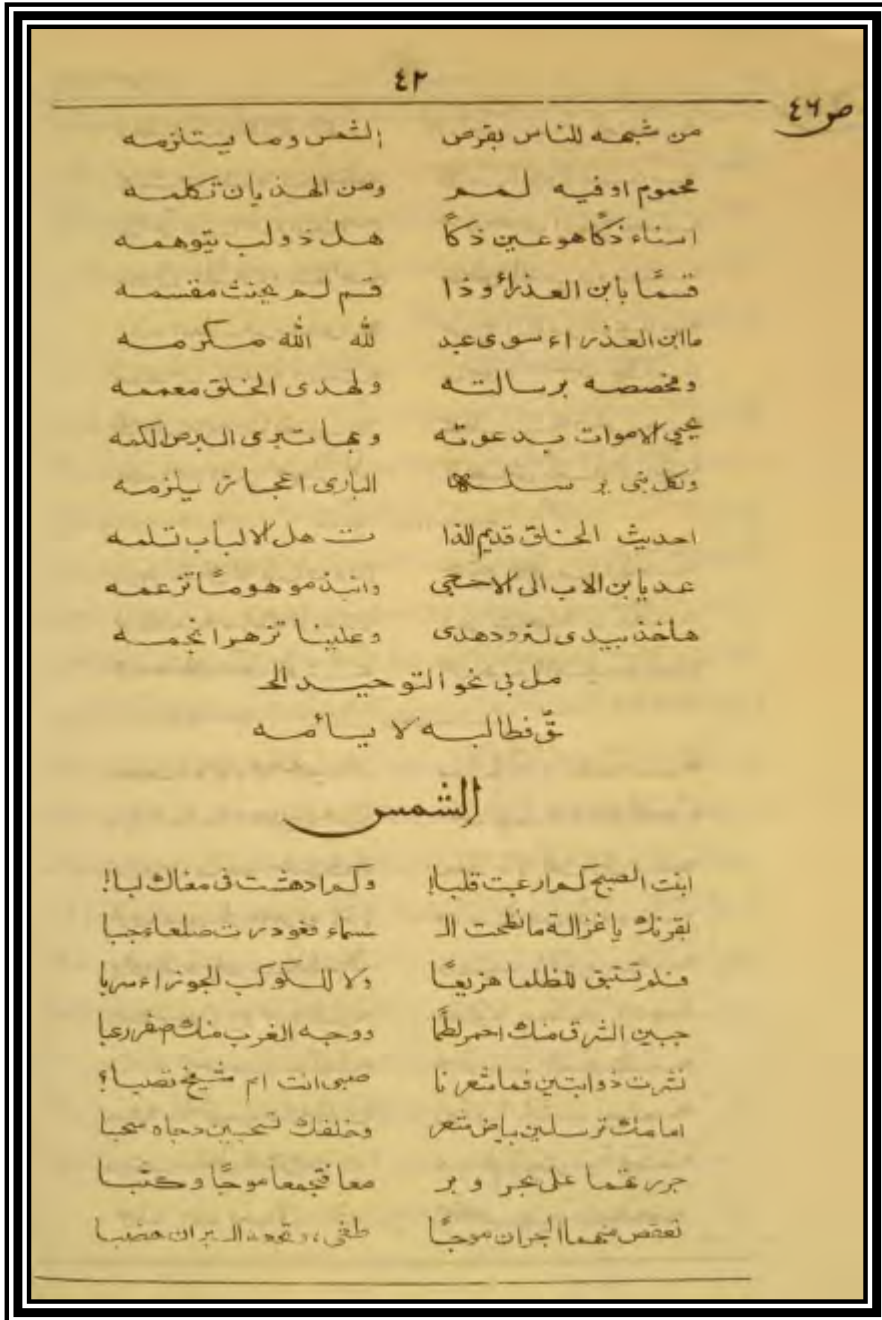 ٤٢
ص ٤٦
من شبهه للناس بقرص الشمس وما يستلزمه
محموم او فيه لمم ومن الهذيان تكلمه
اسناء ذكًا هو عين ذكًا هل ذو لب يتوهمه
قسمًا بأبن العذراء وذا قسم لم يحنث مقسمه
ما ابن العذراء سوى عبد لله الله مكرمه
ومخصصه برسالته ولهدى الخلق معممه
يحيي الاموات بدعوته وبها تبرى البرص الكمه
ولكل نبي بر البارى اعجاز يلزمه
احديث الخلق قديم الذا ت هل الالباب تسلمه
عد يأبن الاب الى الاحجى وانبذ موهومًا تزعمه
هاخذ بيدى لنرود هدى وعلينا تزهر انجمه
مل بي نحو التوحيد الحـ
قّ فطالبه لا يسأمه
الشمس
ابنت الصبح كم ارعبت قلبا! وكم ادهشت في مغناك لبا!
بقرنك يا غزالة ما نطحت الـ سماء فغودرت صلعاء جبا
فلم تبق للظلما هزيعًا ولا للكوكب الجوزاء سربا
جبين الشرق منك احمر لطمًا ووجه الغرب منك صفر رعبا
نثرت ذوابتين فما شعرنا صبي انت ام شيخ تصبا؟
امامك ترسلين بياض شعر وخلفك تسحبين دجاه سحبا
جررتهما على بحر و بر معا فتجمعا موجًا وكثبا
تعقص منهما البحران موجًا طغى، وتجعد البران هضبا